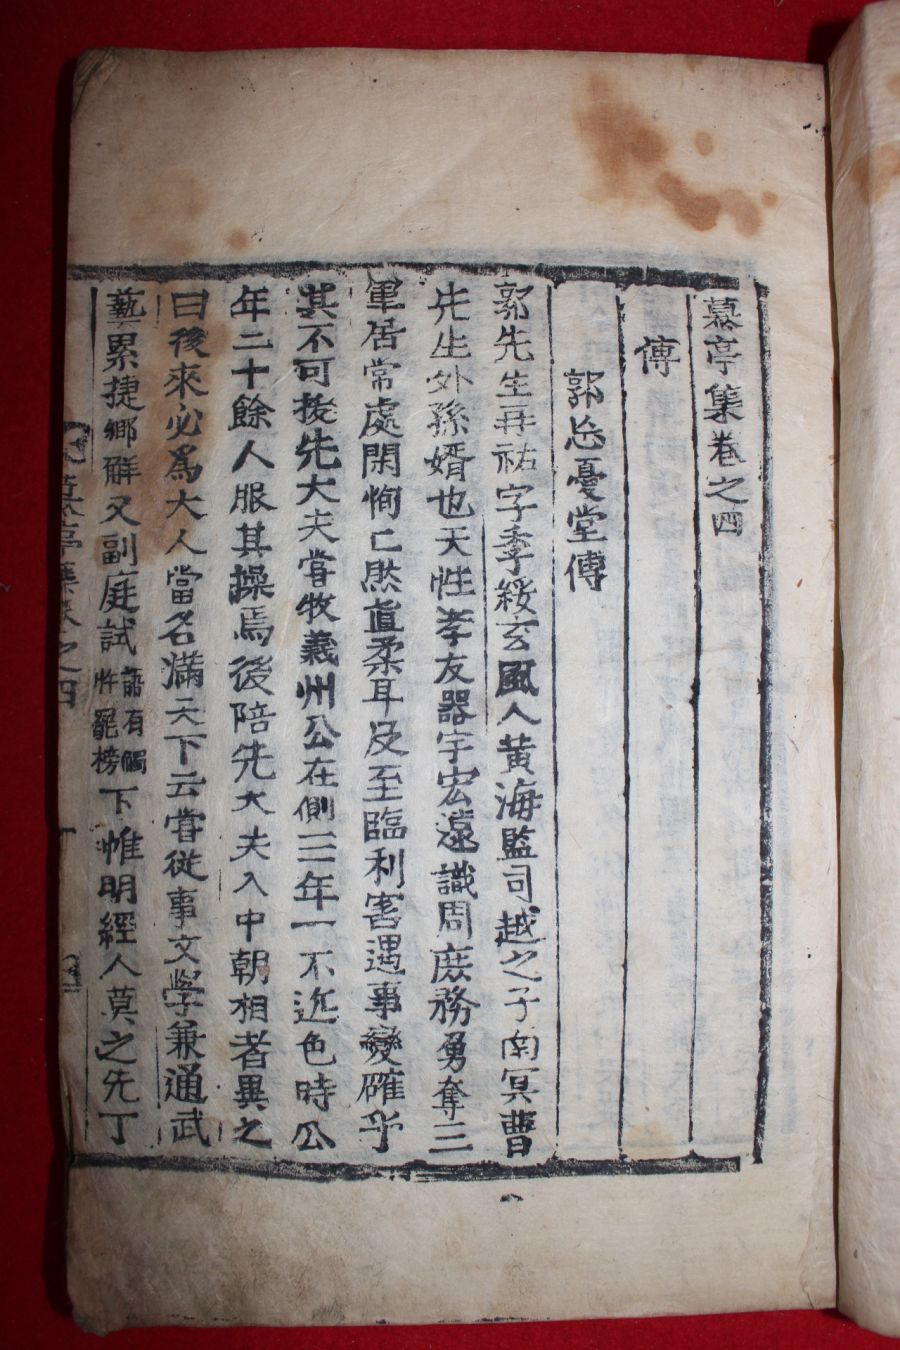 慕亭集卷之四
傳
郭忘憂堂傳
郭先生再祐字季綏玄風人黃海監司越之子南冥曹
先生外孫婿也天性孝友器宇宏遠識周庶務勇奪三
軍居常處閑恂〻然直柔耳及至臨利害遇事變確乎
其不可拔先大夫嘗牧義州公在側三年一不近色時公
年二十餘人服其操焉後陪先大夫入中朝相者異之
曰後來必爲大人當名滿天下云嘗從事文學兼通武
藝累捷鄕解又副庭試語有觸忤罷榜下帷明經人莫之先丁
慕亭集卷之四